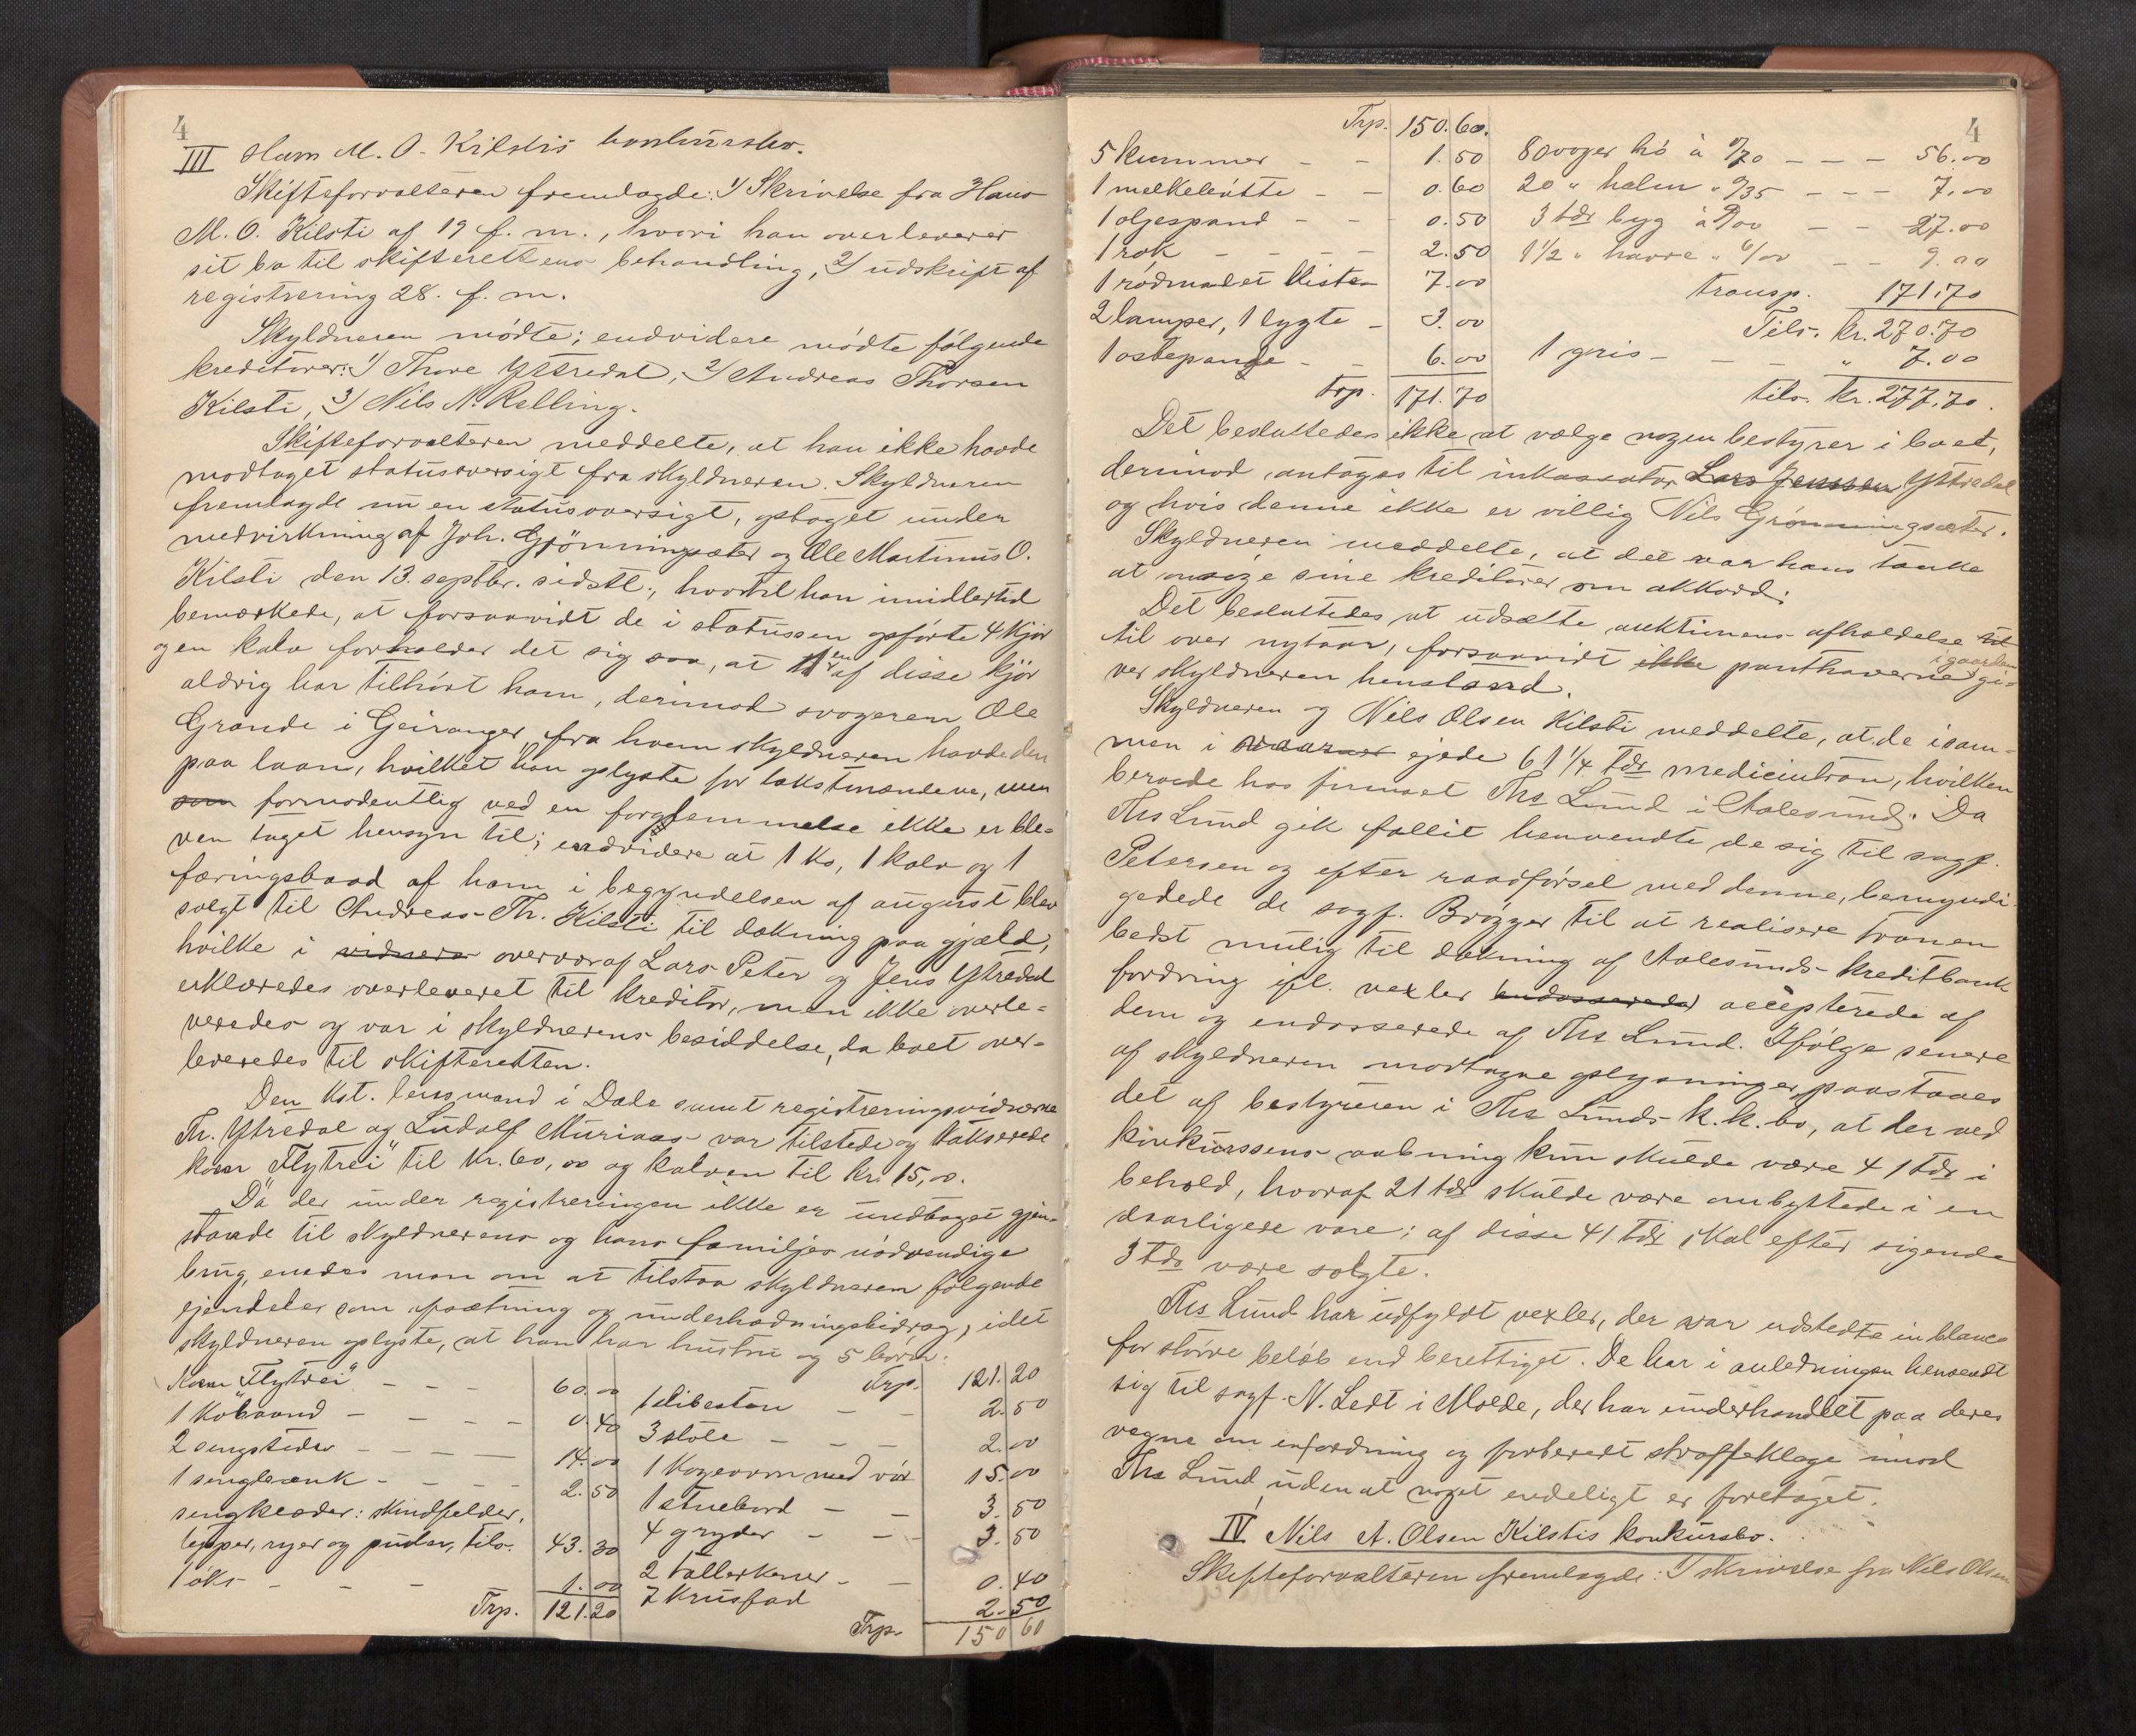 4
III Hans M. O. Kilstis konkursbo.
Skifteforvalteren fremlagde: 1/ Skrivelse fra Hans
M. O. Kilsti af 19 f. m., hvori han overleverer
sit bo til skifterettens behandling, 2/ udskrift af
registrering 28. f. m.
Skyldneren mødte; endvidere mødte følgende
kreditorer: 1/ Thore Yttredal, 2/ Andreas Thorsen
Kilsti, 3/ Nils N. Relling.
Skifteforvalteren meddelte, at han ikke havde
modtaget statusoversigt fra skyldneren. Skyldneren
fremlagde nu en statusoversigt, optaget under
medvirkning af Joh. Gjönningsæter og Ole Martinus O.
Kilsti den 13. septbr. sidstl., hvortil han imidlertid
bemærkede, at forsaavidt de i statussen opførte 4 kjör
og en kalv forholder det sig saa, at en af disse kjör
aldrig har tilhört ham, derimod svogeren Ole
Grande i Geiranger, fra hvem skyldneren havde den
paa laan, hvilket han oplyste for takstmændene, men
som formodentlig ved en forglemmelse ikke er ble-
ven taget hensyn til; endvidere at 1 ko, 1 kalv og 1
færingsbaad af ham i begyndelsen af august blev
solgt til Andreas Th. Kilsti til dækning paa gjæld,
hvilke i vidners overvær af Lars Peter og Jens Ytredal
erklæredes overleveret til kreditor, men ikke overle-
veredes og var i skyldnerens besiddelse, da boet over-
leveredes til skifteretten.
Den kst. lensmand i Dale samt registreringsvidnerne
Th. Ytredal og Ludolf Muriaas var tilstede og takserede
koen "Flytrei" til kr. 60,00 og kalven til kr. 15,00.
Da der under registreringen ikke er undtaget gjen-
stande til skyldnerens og hans familjes nödvendige
brug, enedes man om at tilstaa skyldneren følgende
ejendeler som opsætning og underholdningsbidrag, idet
skyldneren oplyste, at han har hustru og 5 börn:
Koen "Flytrei" - - - 60.00
1 köbaand - - - - 0.40
2 sengsteder - - - - 14.00
1 sengbænk - - - - 2.50
sengklæder: skindfelder,
tepper, ryer og puder, tils. 43.30
1 öks - - - 1.00
Trp. 121.20
Trp. 121.20
1 slibesten - - 2.50
3 stole - - - 2.00
1 kogeovn med rör 15.00
1 stuebord - - 3.50
4 gryder - - - 3.50
2 tallerkener - - 0.40
7 krusfad 2.50
Trp. 150 60
4
Trp. 150.60.
5 kummer - - 1.50
1 melkebötte - - 0.60
1 oljespand - - - 0.50
1 rok - - - - 2.50
1 rödmalet kiste - 7.00
2 lamper, 1 lygte - 3.00
1 ostepande - - 6.00
Trp. 171.70
80 voger hö à 0/70 - - - 56.00
20 " halm " 0/35 - - - 7.00
3 tdr byg à 9/00 - - 27.00
1 1/2 " havre " 6/00 - - 9.00
transp. 171.70
Tils. kr. 270.70
1 gris - - - " 7.00
tils. kr. 277.70.
Det besluttedes ikke at vælge nogen bestyrer i boet,
derimod antoges til inkassator Lars Jenssen Yttredal
og hvis denne ikke er villig Nils Grønningsæter.
Skyldneren meddelte, at det var hans tanke
at ansöge sine kreditorer om akkord.
Det besluttedes at udsætte auktionens afholdelse til
til over nytaar, forsaavidt ikke panthaverne i gaarden gi-
ver skyldneren henstand.
Skyldneren og Nils Olsen Kilsti meddelte, at de isam-
men i ejede 61 1/4 tdr medicintran, hvilken
beroede hos firmaet Ths Lund i Aalesund. Da
Ths Lund gik fallit henvendte de sig til sagf.
Petersen og efter raadförsel med denne, bemyndi-
gede de sagf. Brögger til at realisere tranen
bedst mulig til dækning af Aalesunds kreditbank
fordring ifl. vexler endosserede accepterede af
dem og endosserede af Ths Lund. Ifölge senere
af skyldneren modtagne oplysninger paastaaes
det af bestyreren i Ths Lunds k.k.bo, at der ved
konkurssens aabning kun skulde være 41 tdr i
behold, hvoraf 21 tdr skulde være ombyttede i en
daarligere vare; af disse 41 tdr skal efter sigende
3 tdr være solgte.
Ths Lund har udfyldt vexler, der var udstedte in blanco
for större belöb end berettiget. De har i anledningen henvendt
sig til sagf. N. Ledt i Molde, der har underhandlet paa deres
vegne om enfordning og forberedt straffeklage imod
Ths Lund, uden at noget endeligt er foretaget.
IV Nils A. Olsen Kilstis konkursbo.
Skifteforvalteren fremlagde: 1/ skrivelse fra Nils Olsen